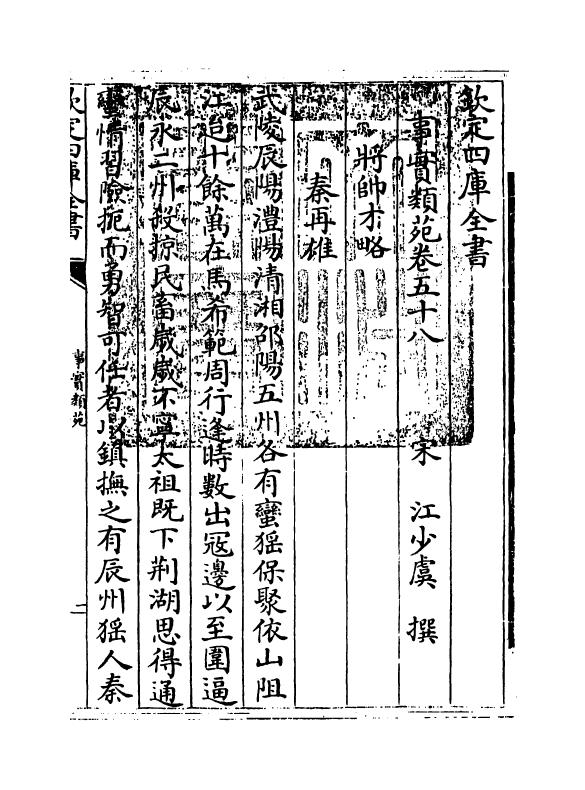 欽定四庫全書
事實類苑卷五十八
宋 江少虞 撰
將帥才略
秦再雄
武陵辰陽澧陽清湘邵陽五州各有蠻猺保聚依山阻
江迨十餘萬在馬希範周行逢時數出寇邊以至圍逼
辰永二州殺掠民畜歲歲不寧太祖既下荆湖思得通
蠻情習險扼而勇智可任者以鎮撫之有辰州猺人秦
欽定四庫全書
事實類苑